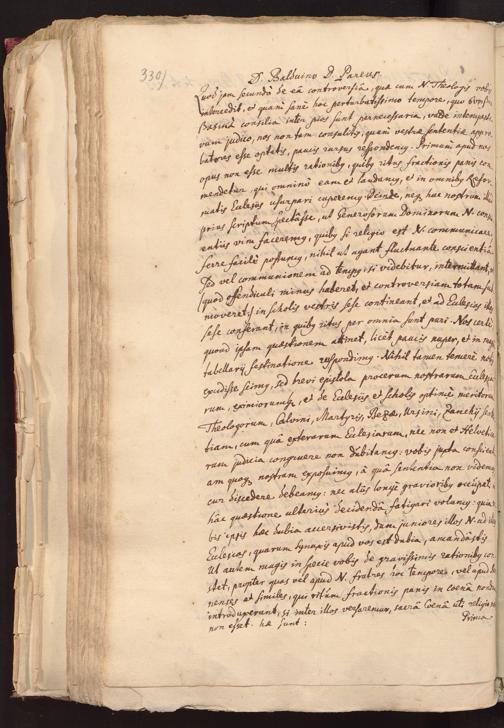 330/
D. Balduino D. Pareus
Quod jam secundū de eâ controversiâ, quae cum N. Theologis vobis
intercedit, et quam sanè hoc perturbatissimo tempore, quo
consilia inter pios sunt pernecessaria, valde intempesti-
vam judico, nos non tam consulitis, quam vestrae sententiae appro-
batores esse optatis, paucis rursus respondemus. Primum apud nos
opus non esse multis rationibus, quibus ritus fractionis panis com
mendetur, qui omninò eam et laudamus, et in omnibus Refor-
matis Eclesiis usurpari cuperemus. Deinde, neque hac nostrum
prius scriptum spectasse, ut Generosorum Dominorum N. consci-
entiis vim faceremus, quibus si religio est N. communicare,
ferre facilè possumus, nihil ut agant fluctuante conscientiâ.
Sed vel communionem ad tempus, si videbitur, intermittant,
(quod offendiculi minus haberet, et controversiam totam
moveret) in scholis vestris sese contineant, et ad Eclesias
sese conferant, in quibus ritus per omnia sunt pari. Nos certè
quoad ipsam quaestionem attinet, licet paucis nuper, et in
tabellarij festinatione respondimus. Nihil tamen temerè nobis
excidisse scimus, sed brevi epistola procerum nostrarum Eclesia-
rum, eximiorumque, et de Eclesiis et scholis optimè meritorum
Theologorum, Calvini, Martyris, Bezae, Ursini, Zanchij senten-
tiam, cum quâ exterarum Eclesiarum, nec non et Helvetica-
rum judicia congruere non dubitamus: vobis juxta
am quoque nostram exposuimus, à quâ sententia non videmus
cur discedere debeamus: nec aliis longè gravioribus occupati,
hâc quaestione ulterius decidendâ fatigari volumus: quia
bis ipsis haec dubia accersivistis, dum juniores illos N. ad
Eclesias, quarum synopsis apud vos est dubia, amandastis.
Ut autem magis in specie vobis de gravissimis rationibus con-
stet, propter quas vel apud N. fratres hoc tempore, vel apud
nenses et similes, qui ritum fractionis panis in coenâ nondum
introduxerunt, si inter illos versaremur, sacrâ Coenâ uti religio
non esset. hae sunt:
Prima